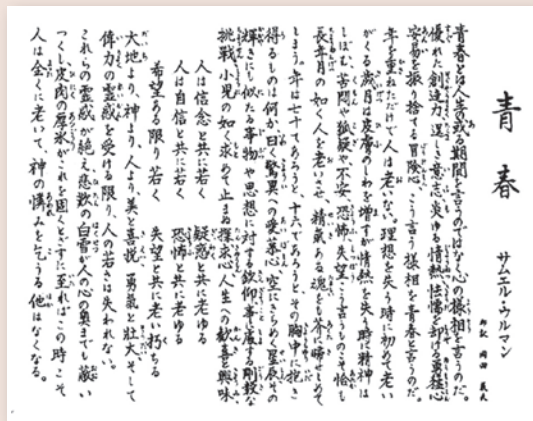 青春
サムエル・ウルマン
邦訳 岡田 義夫
青春とは人生の或る期間を言うのではなく心の様相を言うのだ。
優れた創造力、逞しき意志、炎ゆる情熱、怯懦を却ける勇猛心、
安易を振り捨てる冒険心、こう言う様相を青春と言うのだ。
年を重ねただけで人は老いない。理想を失う時に初めて老い
がくる。歳月は皮膚のしわを増すが情熱を失う時に精神は
しぼむ。苦悶や、狐疑や、不安、恐怖、失望、こう言うものこそ恰も
長年月の如く人を老いさせ、精気ある魂をも芥に帰せしめて
しまう。年は七十であろうと、十六であろうと、その胸中に抱き
得るものは何か。曰く驚異への愛慕心、空にきらめく星辰、その
輝きにも似たる事物や思想に対する欽仰、事に處する剛毅な
挑戦、小児の如く求めて止まぬ探求心、人生への歓喜と興味。
人は信念と共に若く 疑惑と共に老ゆる
人は自信と共に若く 恐怖と共に老ゆる
希望ある限り若く 失望と共に老い朽ちる
大地より、神より、人より、美と喜悦、勇氣と壮大、そして
偉力の霊感を受ける限り、人の若さは失われない。
これらの霊感が絶え、悲歎の白雪が人の心の奥までも蔽い
つくし、皮肉の厚氷がこれを固くとざすに至ればこの時こそ
人は全くに老いて、神の憐みを乞うる他はなくなる。